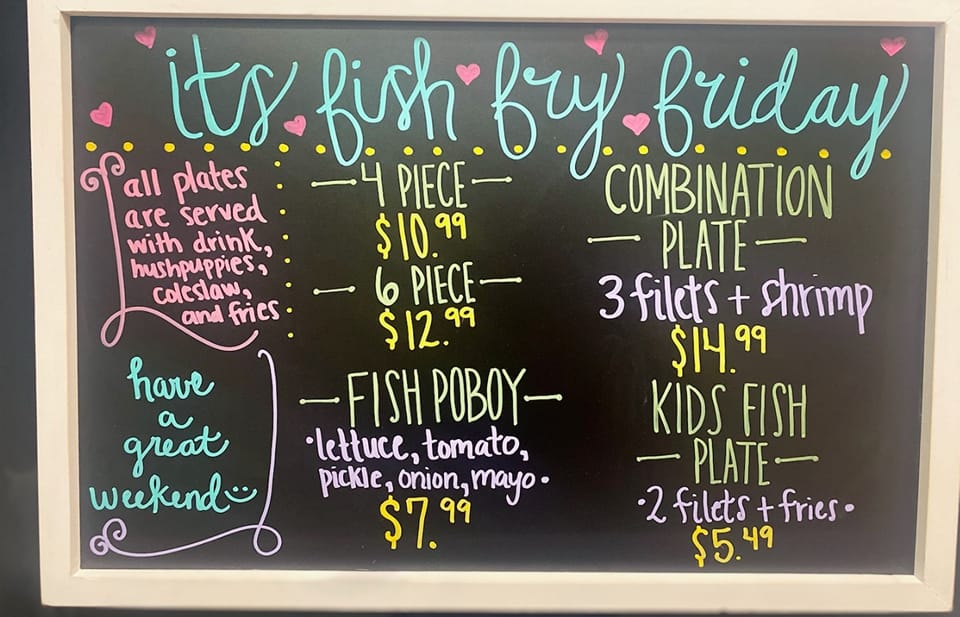 its fish fry friday
all plates
are served
with drink,
hushpuppies,
coleslaw,
and fries
have
a
great
weekend
4 PIECE
$10.99
6 PIECE
$12.99
FISH POBOY
• lettuce, tomato,
pickle, onion, mayo •
$7.99
COMBINATION
PLATE
3 filets + shrimp
$14.99
KIDS FISH
PLATE
• 2 filets + fries •
$5.49